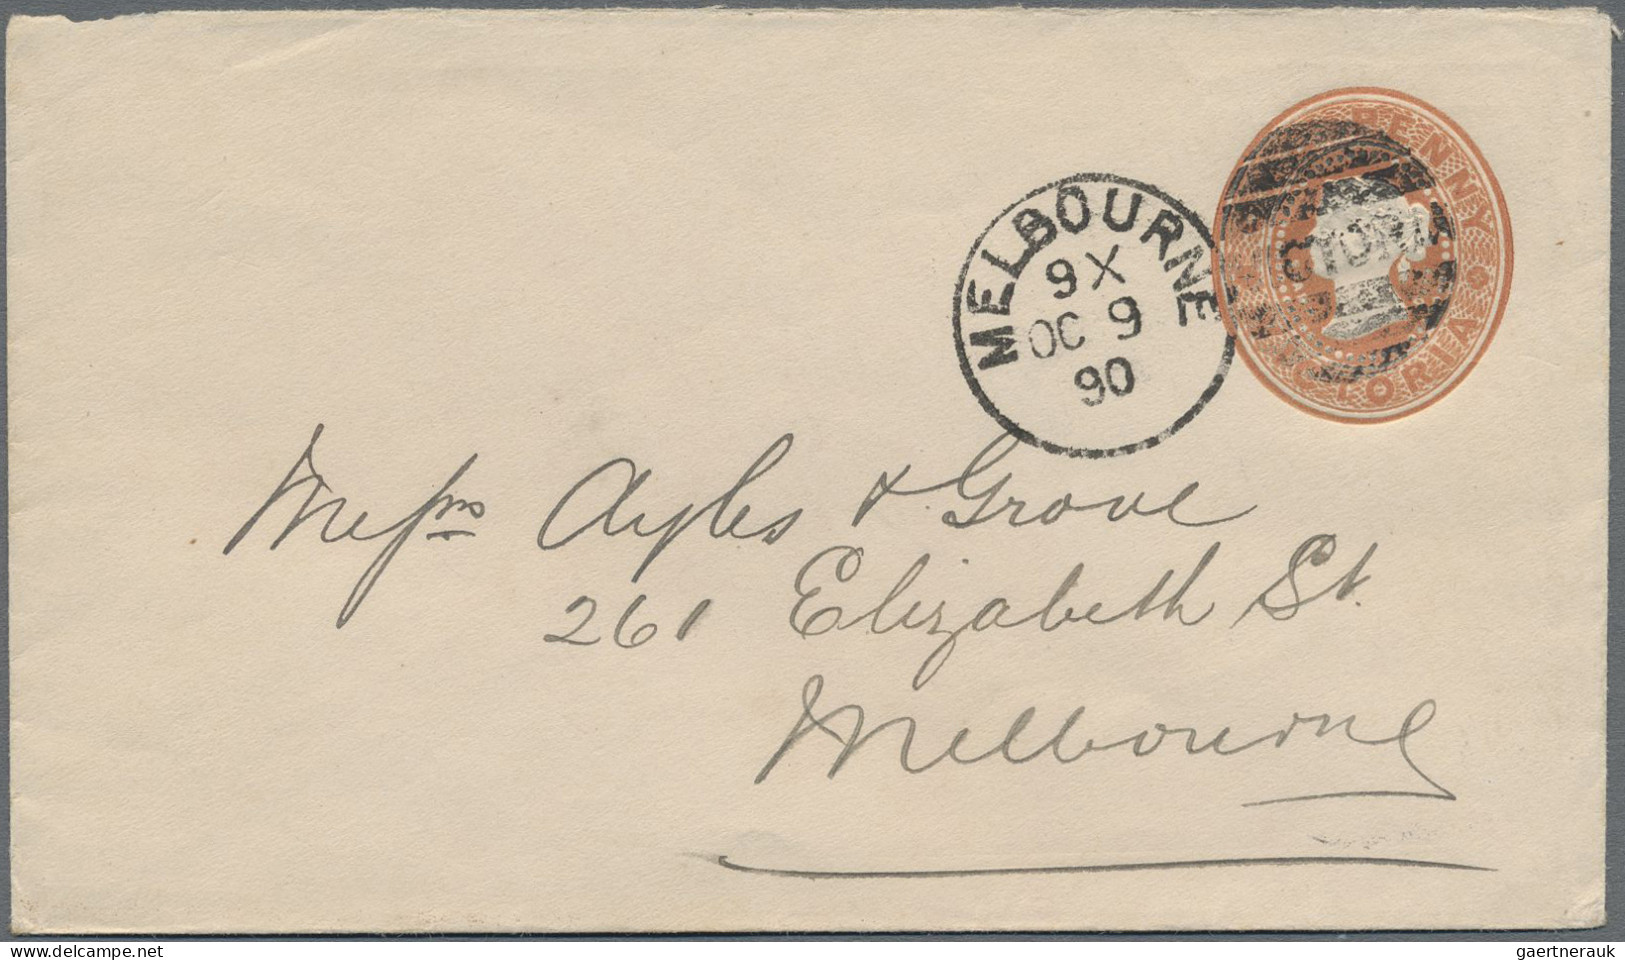 PENNY
VICTORIA
MELBOURNE
9X
OC 9
90
VICTORIA
Messrs Ayles & Grove
261 Elizabeth St.
Melbourne
www.delcampe.net
gaertnerauk